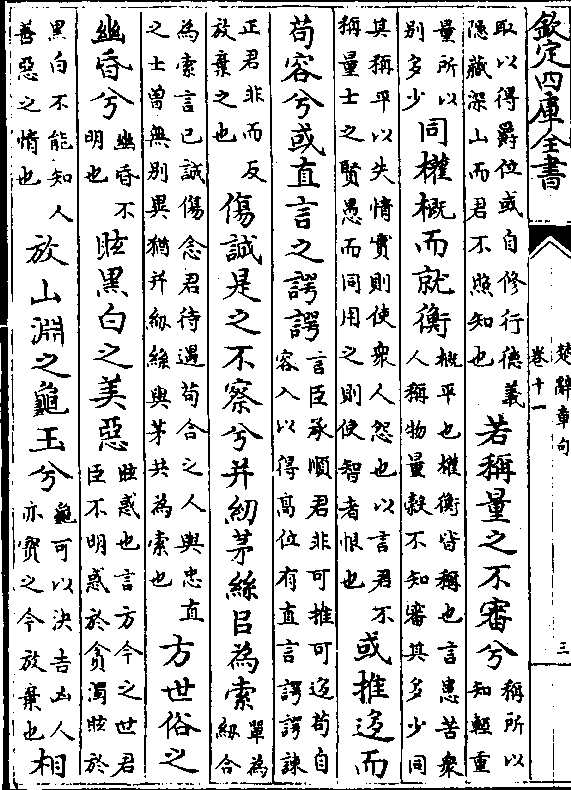 欽定四庫全書
楚辭章句
卷十一
三
取以得爵位或自修行德義
隱藏深山而君不照知也
若稱量之不審兮
稱所以
知輕重
量所以
别多少
同權槩而就衡
槩平也權衡皆稱也言患苦衆
人稱物量穀不知審其多少同
其稱平以失情實則使衆人怨也以言君不
稱量士之賢愚而同用之則使智者恨也
或推迻而
苟容兮或直言之諤諤
言臣承順君非可推可迻苟自
容入以得高位有直言諤諤諫
正君非而反
放棄之也
傷誠是之不察兮并紉茅絲㠯為索
單為
紉合
為索言已誠傷念君待遇苟合之人與忠直
之士曾無别異猶并紉絲與茅共為索也
方世俗之
幽昏兮
幽昏不
明也
眩黑白之美惡
眩惑也言方今之世君
臣不明惑於貪濁眩於
黑白不能知人
善惡之情也
放山淵之龜玉兮
龜可以決吉凶人
亦寳之今放棄也
相